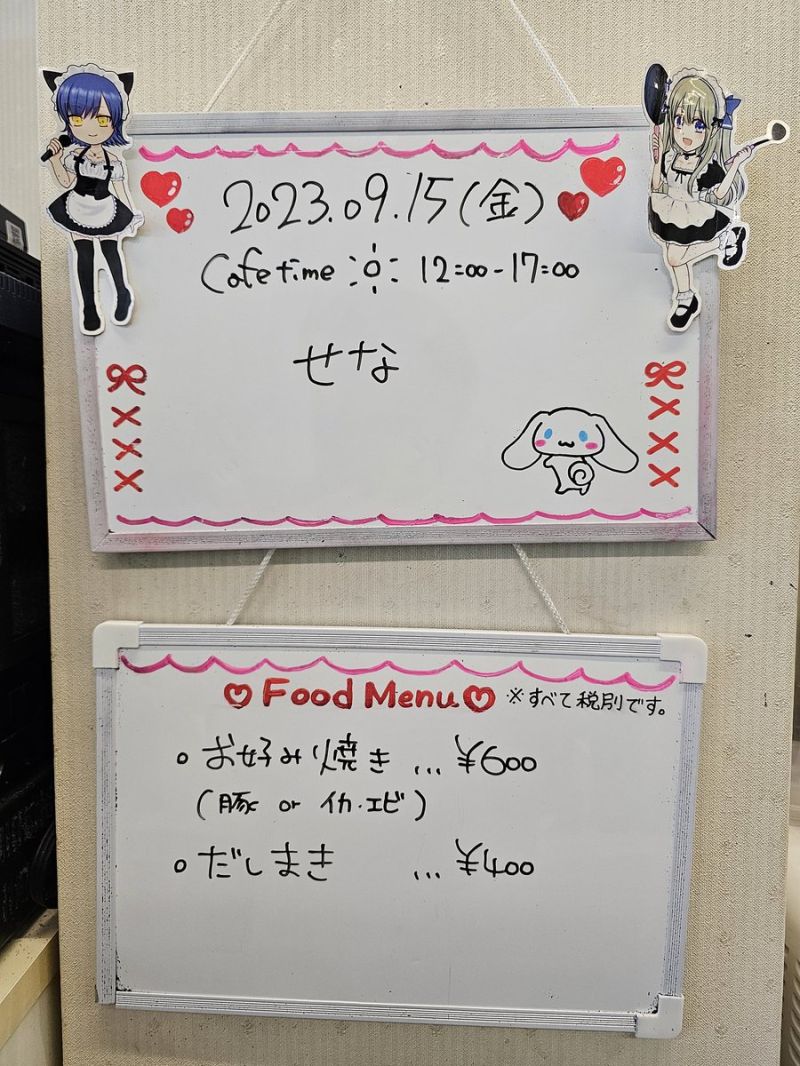 2023.09.15(金)
Cafe time 12:00-17:00
せな
Food Menu ※すべて税別です。
お好み焼き ... ¥600
(豚 or イカ・エビ)
だしまき ... ¥400